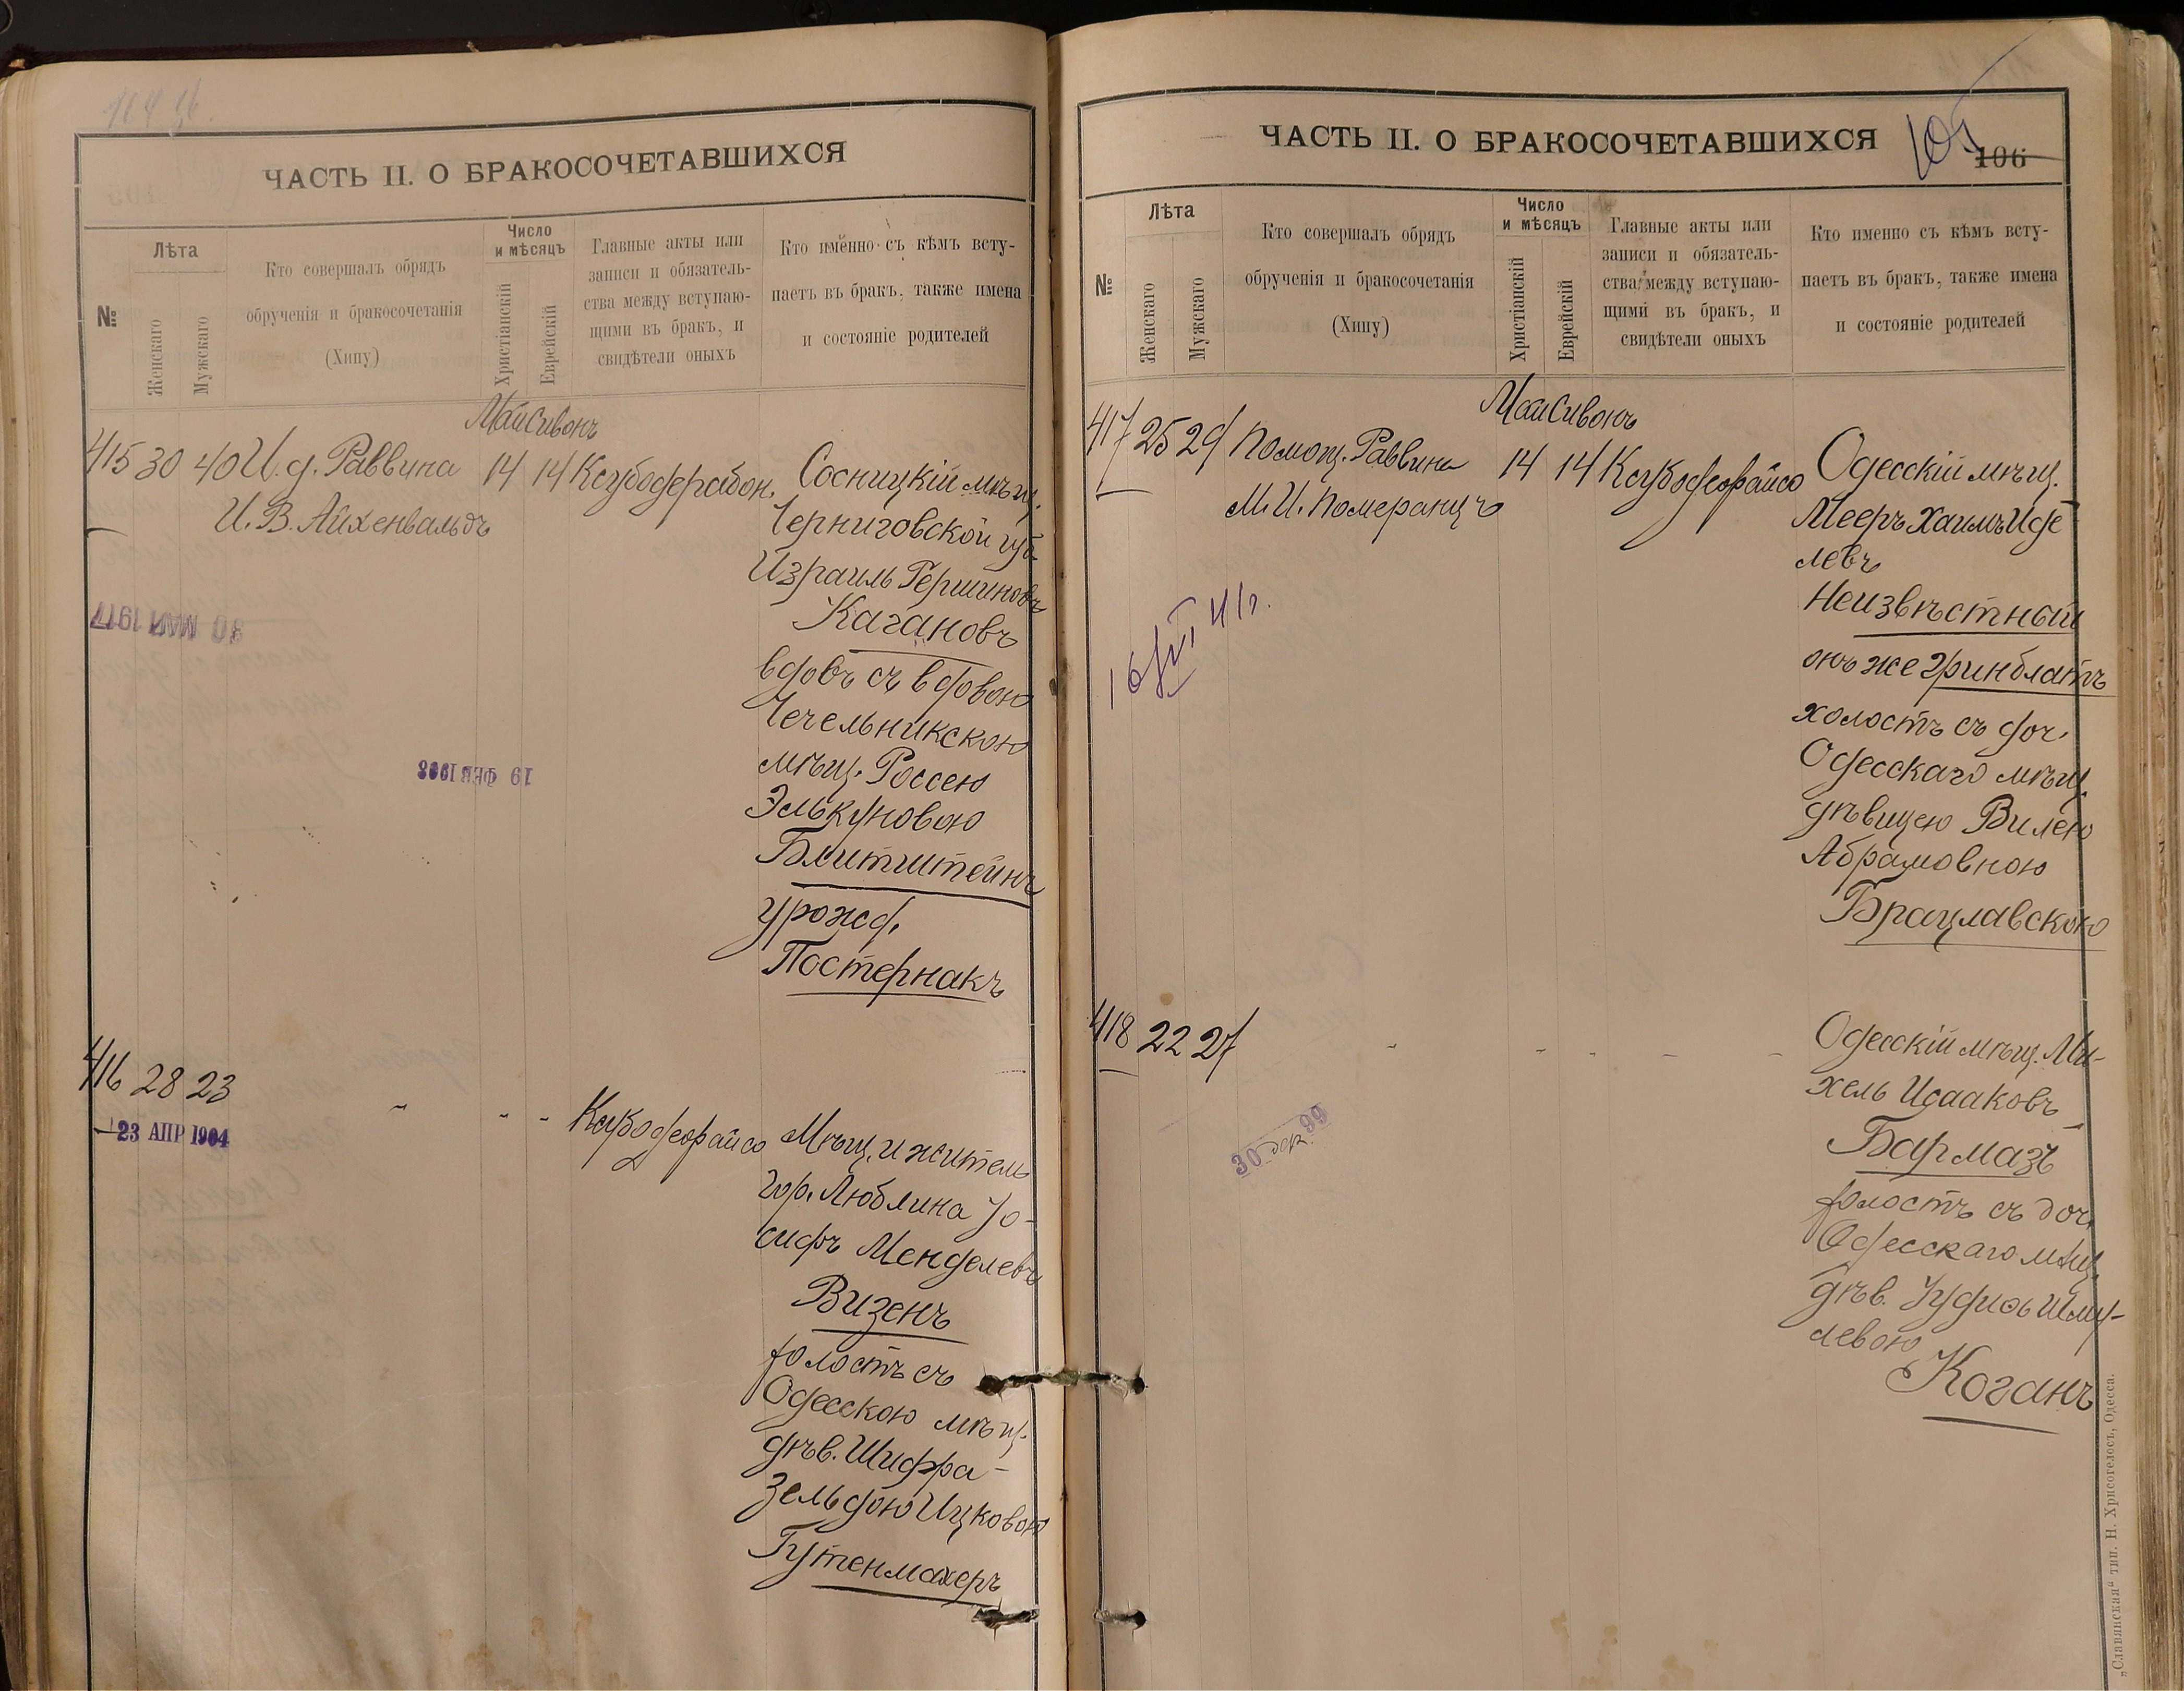 ЧАСТЬ II. О БРАКОСОЧЕТАВШИХСЯ
№
Лѣта
Женскаго
Мужскаго
Кто совершалъ обрядъ
обрученія и бракосочетанія
(Хипу)
Число
и мѣсяцъ
Христіанскій
Еврейскій
Главные акты или
записи и обязатель-
ства между вступаю-
щими въ бракъ, и
свидѣтели оныхъ
Кто именно съ кѣмъ всту-
паетъ въ бракъ, также имена
и состояніе родителей
Май Сивонъ
415 30 40 И. д. Раввина 14 14 Сосницкій мѣщ.
И. В. Айхенвальдъ
Черниговской губ.
Израиль Гершиновъ
Кагановъ
вдовъ съ вдовою
Чечельникскою
мѣщ. Россею
Элькуновою
Блитштейнъ
урожд.
Постернакъ
30 МАЯ 1917
19 ФЕВ 1908
416 28 23 Ксубодеорайсо Мѣщ. и житель
23 АПР 1904
гор. Люблина Іо-
сифъ Менделевъ
Визенъ
холостъ съ
Одесскою мѣщ.
дѣв. Шифра-
Зельдою Ицковою
Гутенмахеръ
ЧАСТЬ II. О БРАКОСОЧЕТАВШИХСЯ
105
106
№
Лѣта
Женскаго
Мужскаго
Кто совершалъ обрядъ
обрученія и бракосочетанія
(Хипу)
Число
и мѣсяцъ
Христіанскій
Еврейскій
Главные акты или
записи и обязатель-
ства между вступаю-
щими въ бракъ, и
свидѣтели оныхъ
Кто именно съ кѣмъ всту-
паетъ въ бракъ, также имена
и состояніе родителей
Май Сивонъ
417 25 29 Помощ. Раввина 14 14 Ксубодеорайсо Одесскій мѣщ.
М. И. Померанцъ
Мееръ Хаимъ Иде
левъ
Неизвѣстный
онъ же Гринблатъ
холостъ съ доч.
Одесскаго мѣщ.
дѣвицею Вилею
Абрамовною
Брацлавскою
16/VI 41г.
418 22 27 Одесскій мѣщ. Ми-
хель Исааковъ
Бармазъ
холостъ съ доч.
Одесскаго мѣщ.
дѣв. Іудись Шму-
левою
Коганъ
30 дек. 99
„Славянская“ тип. Н. Хрисогелосъ, Одесса.